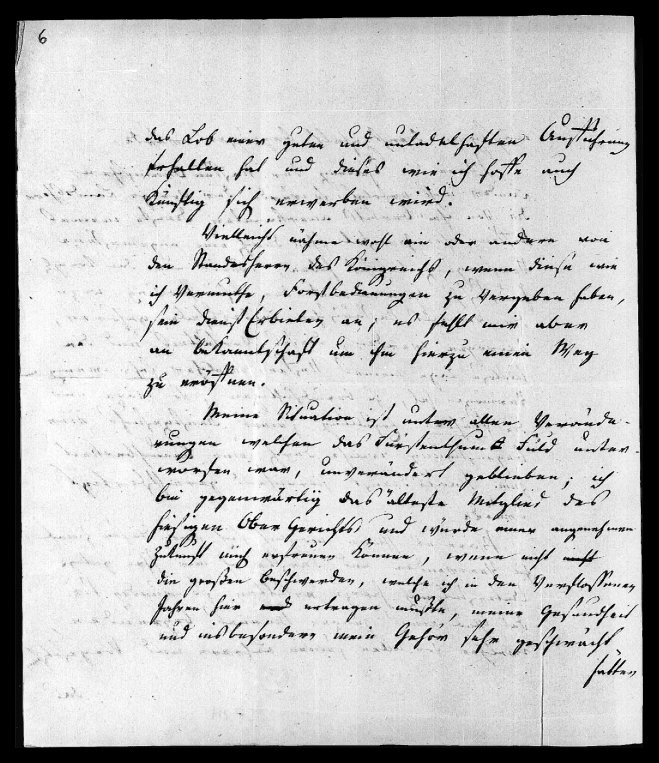 6
das Lob einer guten und untadelhaften Aufführung
erhalten hat und dieses wie ich hoffe auch
künftig sich erwerben wird.
Vielleicht nähme wohl ein oder andere von
den Standesherrn des Königreichs, wenn diese wie
ich vermuthe, Forstbedienungen zu vergeben haben,
sein dienst Erbieten an; es fehlt mir aber
an bekanntschaft um ihm hierzu einen Weg
zu eröffnen.
Meine Situation ist unter allen Verände-
rungen welchen das Fürstenthum Fuld unter-
worfen war, unverändert geblieben; ich
bin gegenwärtig das älteste Mitglied des
hiesigen Ober Gerichts und würde einer angenehmen
Zukunft mich erfreuen können, wenn nicht
die großen beschwerden, welche ich in den verflossenen
Jahren hier ertragen mußte, meine Gesundheit
und insbesondere mein Gehör sehr geschwächt
hätten